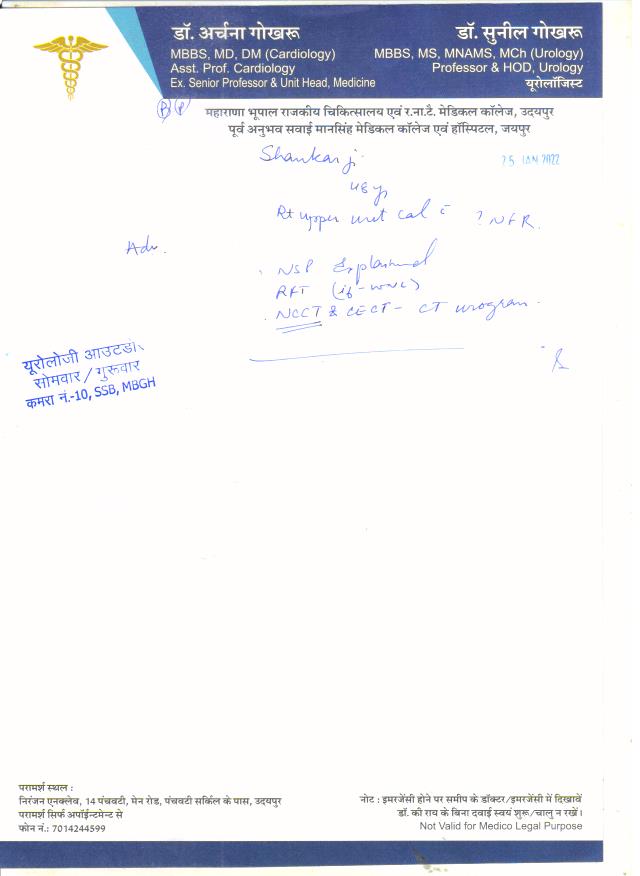 डॉ. अर्चना गोखरू
MBBS, MD, DM (Cardiology)
Asst. Prof. Cardiology
Ex. Senior Professor & Unit Head, Medicine
डॉ. सुनील गोखरू
MBBS, MS, MNAMS, MCh (Urology)
Professor & HOD, Urology
यूरोलॉजिस्ट
महाराणा भूपाल राजकीय चिकित्सालय एवं र.ना.टै. मेडिकल कॉलेज, उदयपुर
पूर्व अनुभव सवाई मानसिंह मेडिकल कॉलेज एवं हॉस्पिटल, जयपुर
Shankar ji
25 JAN 2022
48 y
Rt upper uret cal c̄ ? NFR.
Adv.
NSP Explained
RFT (if - WNL)
NCCT & CECT - CT urogram.
यूरोलोजी आउटडोर
सोमवार / गुरूवार
कमरा नं.-10, SSB, MBGH
परामर्श स्थल :
निरंजन एनक्लेव, 14 पंचवटी, मेन रोड, पंचवटी सर्किल के पास, उदयपुर
परामर्श सिर्फ अपॉईन्टमेन्ट से
फोन नं.: 7014244599
नोट : इमरजेंसी होने पर समीप के डॉक्टर/इमरजेंसी में दिखावें
डॉ. की राय के बिना दवाई स्वयं शुरू/चालु न रखें।
Not Valid for Medico Legal Purpose